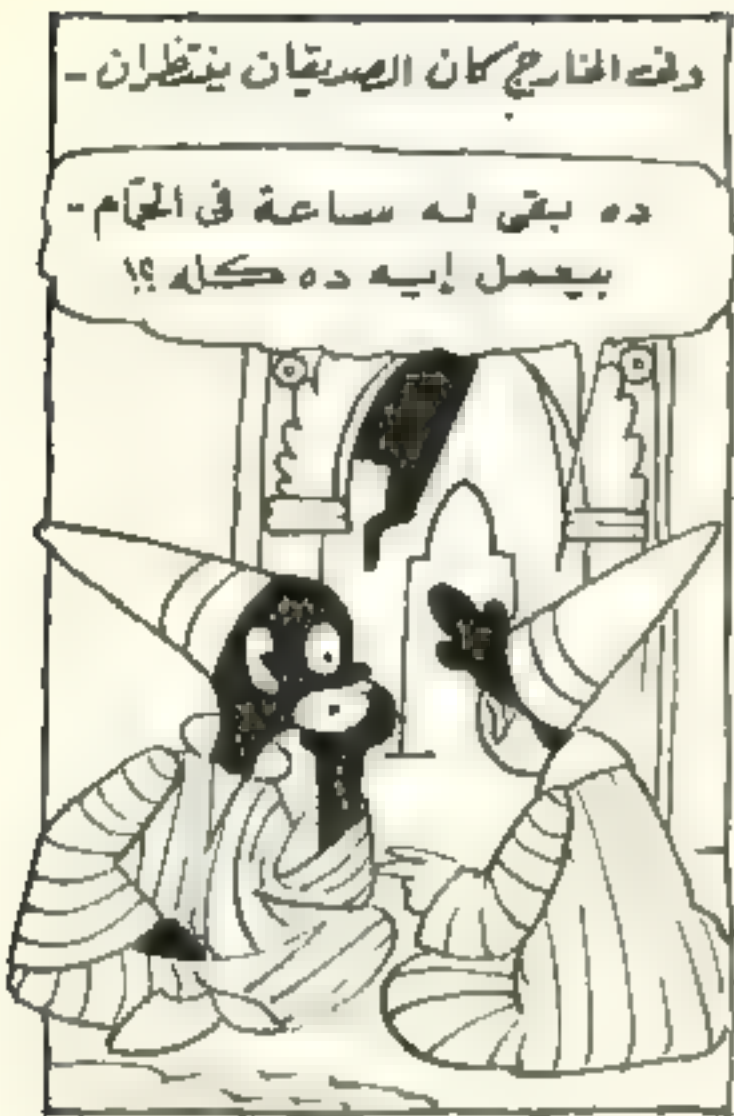 وفى الخارج كان الصديقان ينتظران -
ده بقى له ساعة فى الحمّام -
بيعمل إيه ده كله ؟!